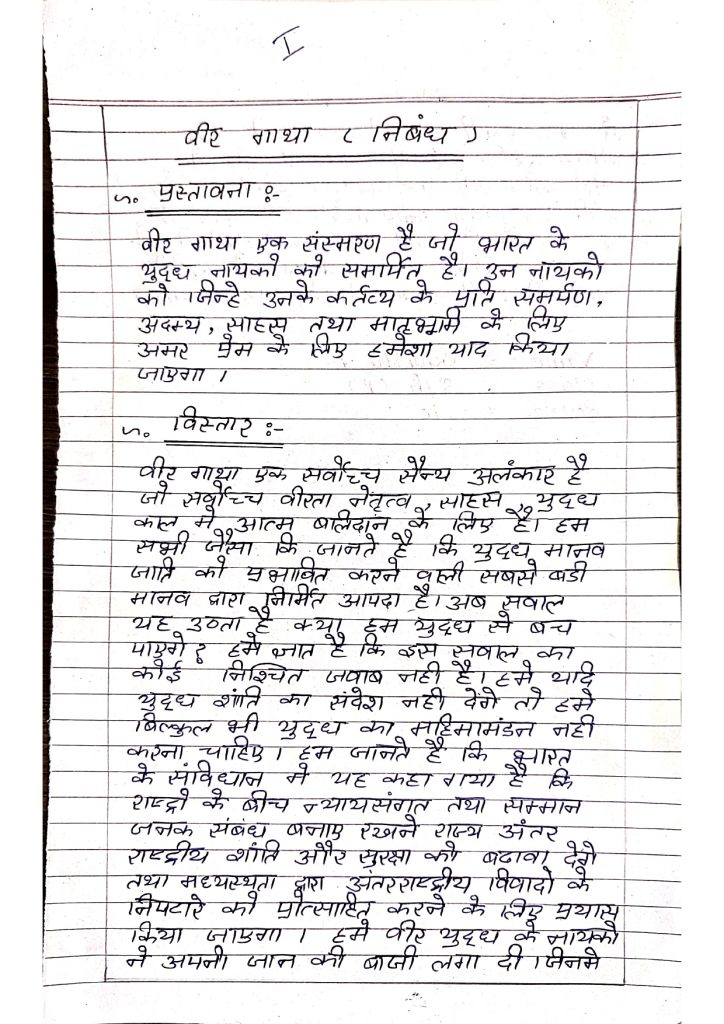 I
वीर गाथा ( निबंध )
प्रस्तावना :-
वीर गाथा एक संस्मरण है जो भारत के
युद्ध नायको को समर्पित है। उन नायको
को जिन्हे उनके कर्तव्य के प्रति समर्पण,
अदम्य, साहस तथा मातृभूमि के लिए
अमर प्रेम के लिए हमेशा याद किया
जाएगा ।
विस्तार :-
वीर गाथा एक सर्वोच्च सैन्य अलंकार है
जो सर्वोच्च वीरता नेतृत्व, साहस, युद्ध
काल मे आत्म बलिदान के लिए है। हम
सभी जैसा कि जानते है कि युद्ध मानव
जाति को प्रभावित करने वाली सबसे बडी
मानव द्वारा निर्मित आपदा है। अब सवाल
यह उठता है क्या हम युद्ध से बच
पाएगे ? हमे ज्ञात है कि इस सवाल का
कोई निश्चित जवाब नही है। हमे यदि
युद्ध शांति का संदेश नही देंगे तो हमे
बिल्कुल भी युद्ध का महिमामंडन नही
करना चाहिए। हम जानते है कि भारत
के संविधान मे यह कहा गया है कि
राष्ट्रो के बीच न्यायसंगत तथा सम्मान
जनक संबंध बनाए रखने राज्य अंतर
राष्ट्रीय शांति और सुरक्षा को बढावा देगे
तथा मध्यस्थता द्वारा अंतरराष्ट्रीय विवादो के
निपटारे को प्रोत्साहित करने के लिए प्रयास
किया जाएगा । हमे वीर युद्ध के नायको
ने अपनी जान की बाजी लगा दी। जिनमे